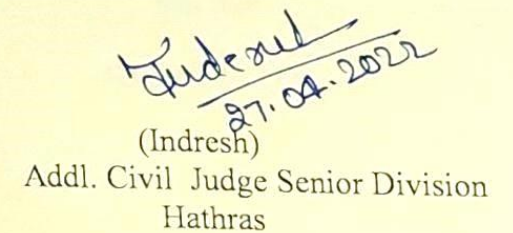 Indresh
27.04.2022
(Indresh)
Addl. Civil Judge Senior Division
Hathras